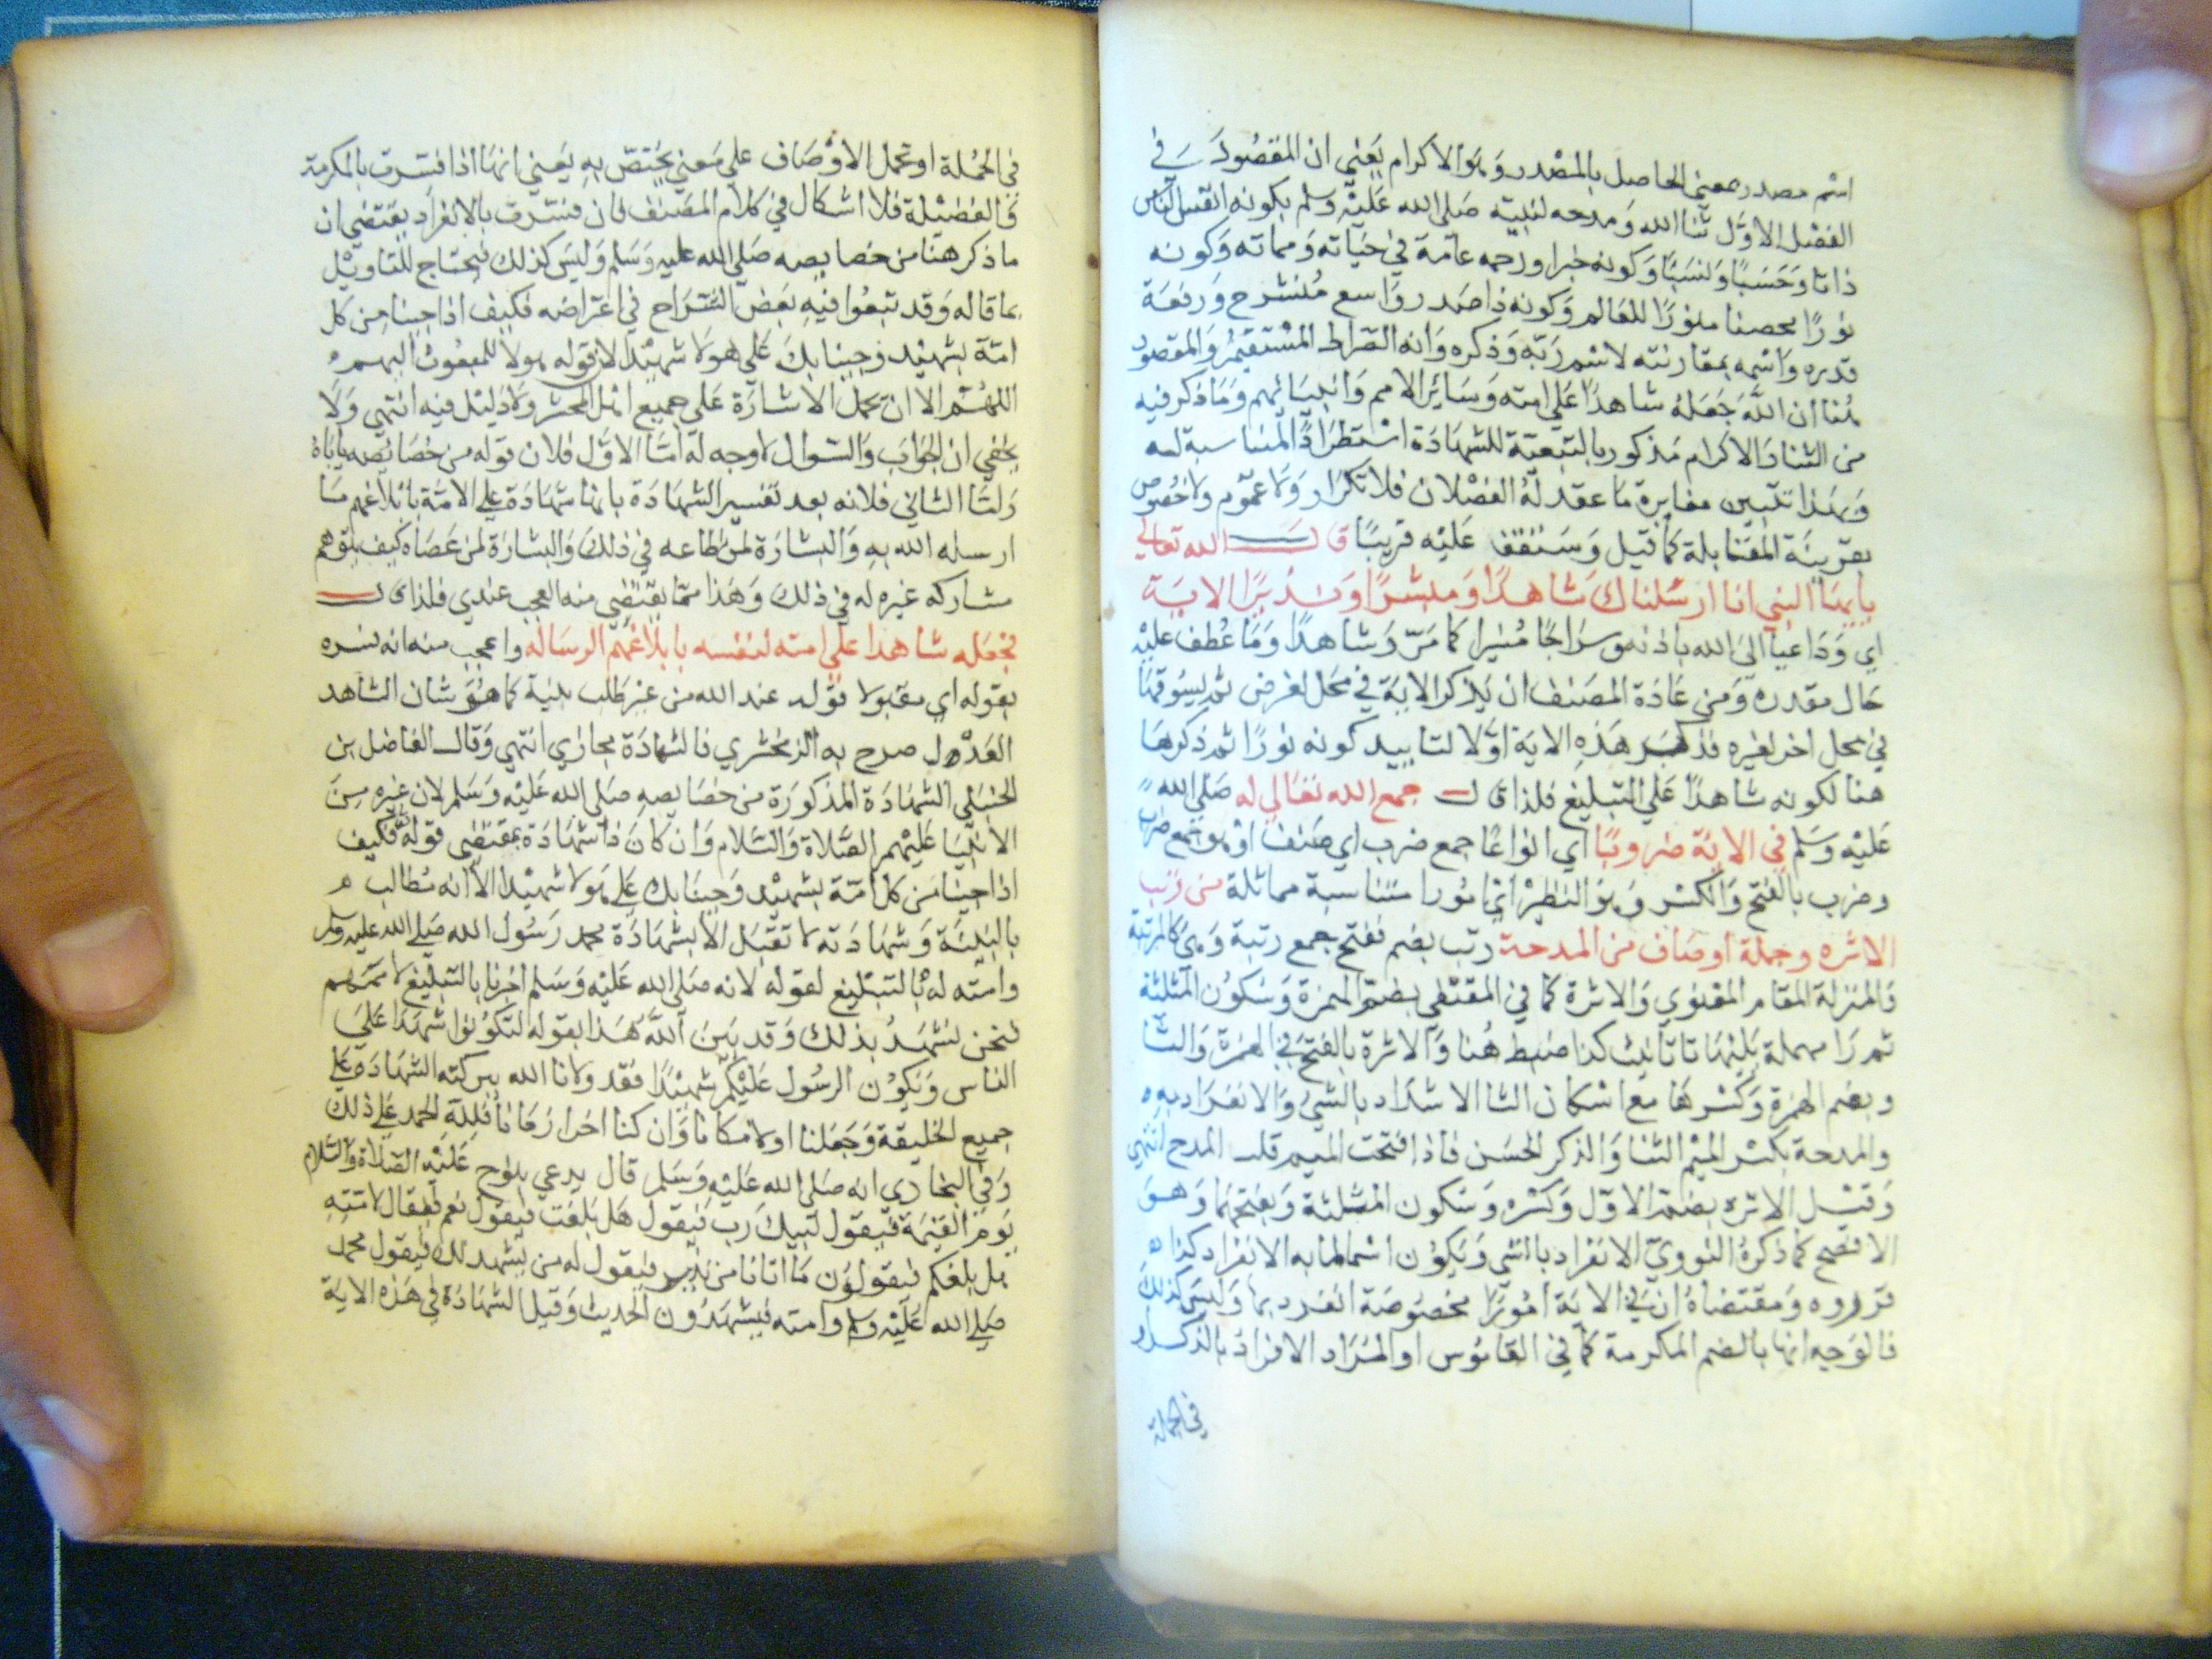 اسم مصدر بمعنى الحاصل بالمصدر وهو الاكرام يعني ان المقصود في
الفضل الاول ثنا الله ومدحه لنبيه صلى الله عليه وسلم بكونه انفس الناس
ذاتا وحسبا ونسبا وكونه خيرا ورحمه عامة في حياته ومماته وكونه
نورا محضا منورا للعالم وكونه ذا صدر واسع منشرح ورفعة
قدره واسمه بمقارنته لاسم ربه وذكره وانه الصراط المستقيم والمقصود
هنا ان الله جعله شاهدا على امته وسائر الامم وانبيائهم وما ذكر فيه
من الثنا والاكرام مذكور بالتبعية للشهادة استطرادا لمناسبة له
وبهذا تبين مغايرة ما عقد له الفضلان فلا تكرار ولا عموم ولا خصوص
بقرينة المقابلة كما قيل وستقف عليه قريبا قال الله تعالى
يا يها النبي انا ارسلناك شاهدا ومبشرا ونذيرا الاية
اي وداعيا الى الله باذنه وسراجا منيرا كما مر وشاهدا وما عطف عليه
حال مقدره ومن عادة المصنف ان يذكر الاية في محل لغرض ثم يسوقها
في محل اخر لغيره فذكر هذه الاية اولا لتاييد كونه نورا ثم ذكرها
هنا لكونه شاهدا على التبليغ فلذا قال جمع الله تعالى له صلى الله
عليه وسلم في الاية ضروبا اي انواعا جمع ضرب اي صنف او هو جمع ضرب
وضرب بالفتح والكسر وهو النظير اي امورا متناسبة مماثلة من رتب
الاثره وجملة اوصاف من المدحة رتب بضم ففتح جمع رتبة وهي كالمرتبة
والمنزلة المقام المعنوي والاثرة كما في المقتفى بضم الهمزة وسكون المثلثة
ثم را مهملة يليها تا تانيث كذا ضبط هنا والاثرة بالفتح في الهمزة والثا
وبضم الهمزة وكسرها مع اسكان الثا الاستبداد بالشي والانفراد به
والمدحة بكسر الميم الثنا والذكر الحسن فاذا فتحت الميم قلت المدح انتهى
وقيل الاثره بضم الاول وكسره وسكون المثلثة وبفتحهما وهو
الافصح كما ذكره النووي الانفراد بالشي ويكون اسما لما به الانفراد كذا
قرروه ومقتضاه ان في الاية امورا مخصوصة انفرد بها وليس كذلك
فالوجه انها بالضم المكرمة كما في القاموس او المراد الافراد بالذكر
في الجملة
في الجملة او تحمل الاوصاف على معنى يختص به يعني انها اذا فسرت بالمكرمة
والفضيلة فلا اشكال في كلام المصنف فان فسرت بالانفراد يقتضي ان
ما ذكر هنا من خصايصه صلى الله عليه وسلم وليس كذلك فيحتاج للتاويل
بما قاله وقد تبعوا فيه بعض الشراح في اعتراضه فكيف اذا جينا من كل
امة بشهيد وجينا بك على هولا شهيدا لان قوله هولا للمبعوث اليهم
اللهم الا ان يحمل الاشارة على جميع اهل المحشر ولا دليل فيه انتهى ولا
يخفى ان الجواب والسوال لا وجه له اما الاول فلان قوله من خصائصه ياباه
واما الثاني فلانه بعد تفسير الشهادة بانها شهادة على الامة بابلاغهم ما
ارسله الله به والبشارة لمن اطاعه في ذلك والبشارة لمن عصاه كيف يتوهم
مشاركه غيره له في ذلك وهذا مما يقتضى منه العجب عندي فلذا قال
فجعله شاهدا على امته لنفسه بابلاغهم الرساله واعجب منه انه فسره
بقوله اي مقبولا قوله عند الله من غير طلب بينة كما هو شان الشاهد
العدل صرح به الزمخشري فالشهادة مجازي انتهى وقال الفاضل بن
الحنبلي الشهادة المذكورة من خصايصه صلى الله عليه وسلم لان غيره من
الانبيا عليهم الصلاة والسلام وان كان ذا شهادة بمقتضى قوله فكيف
اذا جينا من كل امة بشهيد وجينا بك على هولا شهيدا الا انه مطالب
بالبينة وشهادته لا تقبل الا بشهادة محمد رسول الله صلى الله عليه وسلم
وامته له بالتبليغ لقوله لانه صلى الله عليه وسلم اخبرنا بالتبليغ لاممهم
فنحن نشهد بذلك وقد بين الله هذا بقوله لتكونوا شهدا على
الناس ويكون الرسول عليكم شهيدا فقد ولانا الله ببركته الشهادة على
جميع الخليقة وجعلنا اولا مكانا وان كنا اخرا زمانا فلله الحمد على ذلك
وفي البخاري انه صلى الله عليه وسلم قال يدعى بنوح عليه الصلاة والسلام
يوم القيمة فيقول لبيك رب فيقول هل بلغت فيقول نعم فيقال لامته
هل بلغكم فيقولون ما اتانا من نذير فيقول له من يشهد لك فيقول محمد
صلى الله عليه وسلم وامته فيشهدون الحديث وقيل الشهادة في هذه الاية